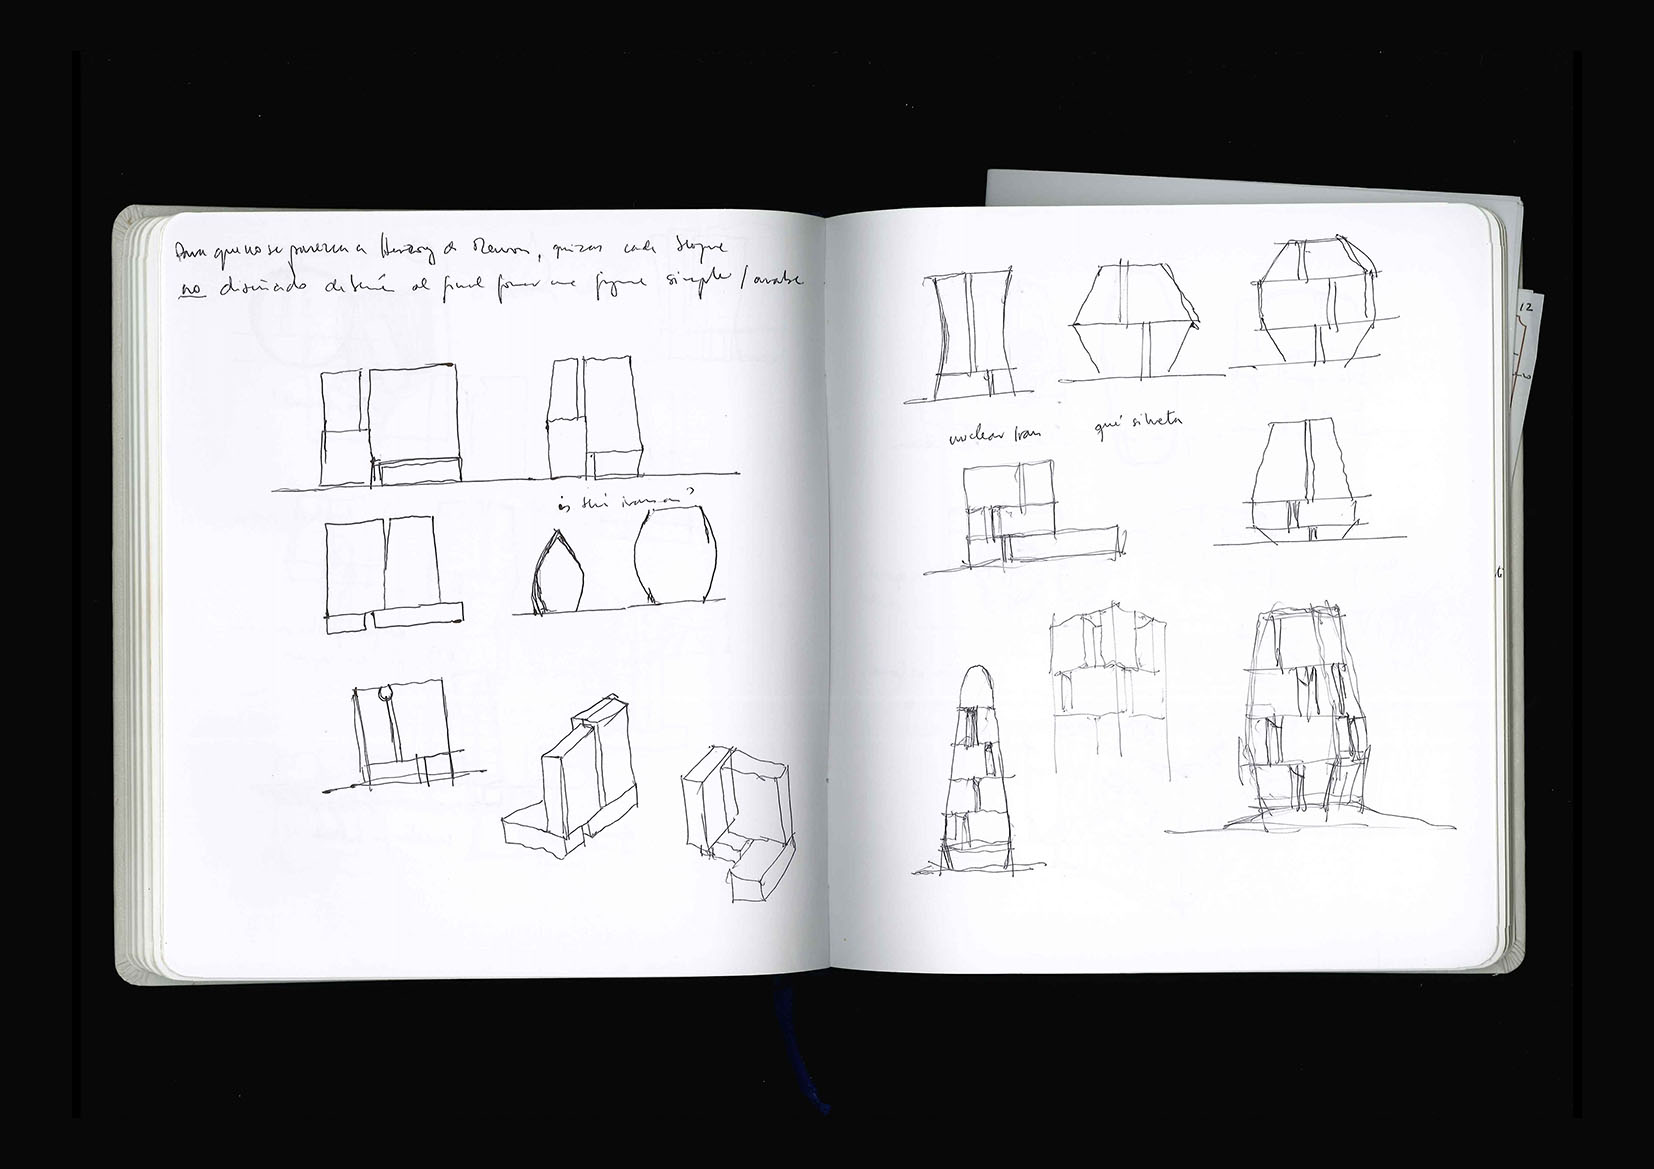 Para que no se parezca a Herzog & Meuron, quizás cada bloque
no diseñado debería al final formar una figura simple /
is this iranian?
nuclear Iran
qué silueta
12